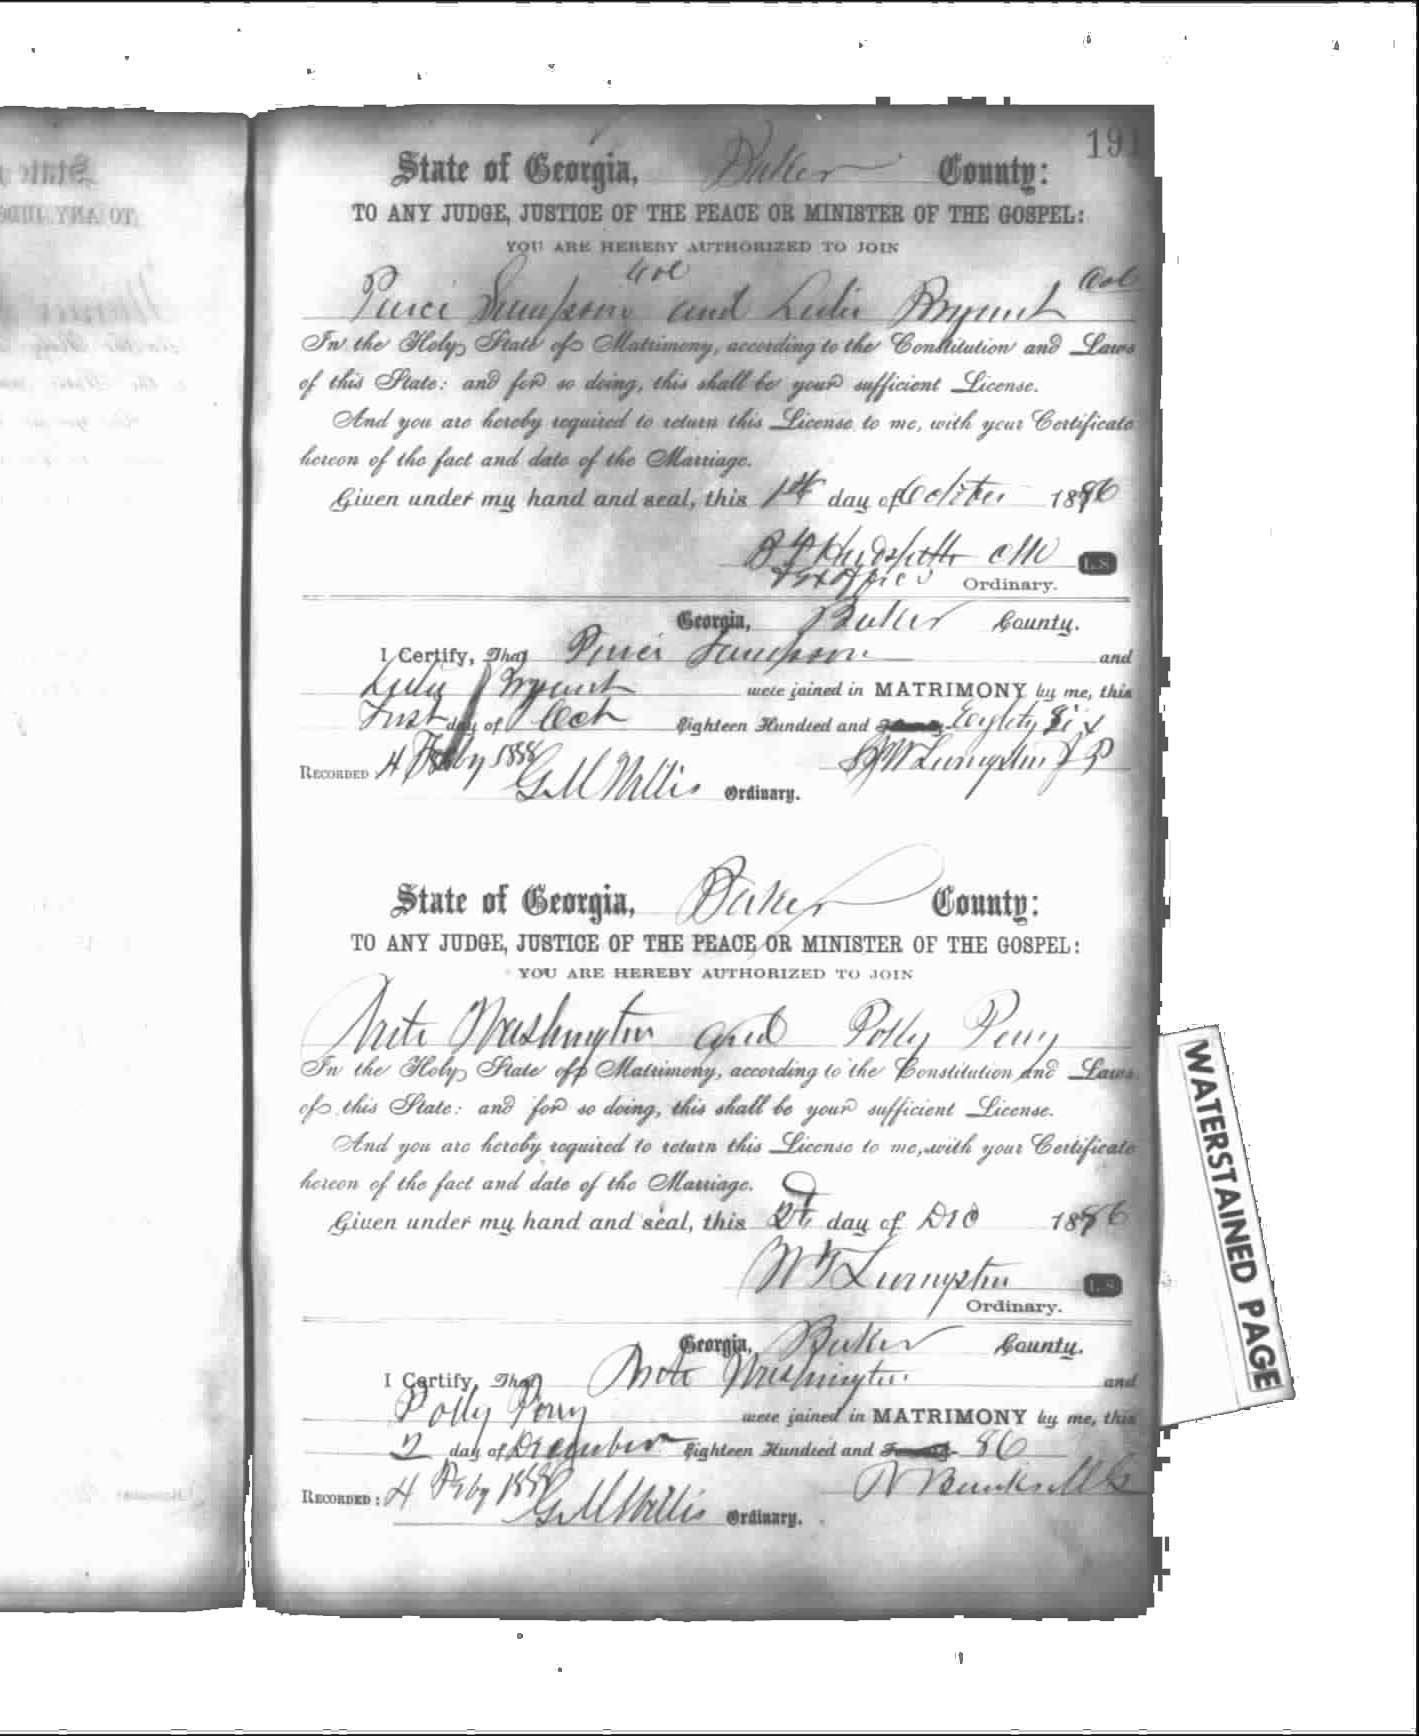 191
State of Georgia, Baker County:
TO ANY JUDGE, JUSTICE OF THE PEACE OR MINISTER OF THE GOSPEL:
YOU ARE HEREBY AUTHORIZED TO JOIN
Col Col
Simpson and Bryant
In the Holy State of Matrimony, according to the Constitution and Laws
of this State: and for so doing, this shall be your sufficient License.
And you are hereby required to return this License to me, with your Certificate
hereon of the fact and date of the Marriage.
Given under my hand and seal, this 1st day of October 1886
Hudspeth L.S.
Ordinary.
Georgia, Baker County.
I Certify, That and
Bryant were joined in MATRIMONY by me, this
First day of Oct Eighteen Hundred and Eighty Six
Livingston J P
RECORDED: 4 Feby 1888 G M Willis Ordinary.
State of Georgia, Baker County:
TO ANY JUDGE, JUSTICE OF THE PEACE OR MINISTER OF THE GOSPEL:
YOU ARE HEREBY AUTHORIZED TO JOIN
Washington and Polly Perry
In the Holy State of Matrimony, according to the Constitution and Laws
of this State: and for so doing, this shall be your sufficient License.
And you are hereby required to return this License to me, with your Certificate
hereon of the fact and date of the Marriage.
Given under my hand and seal, this day of Dec 1886
W T Livingston L.S.
Ordinary.
Georgia, Baker County.
I Certify, That Washington and
Polly Perry were joined in MATRIMONY by me, this
2 day of December Eighteen Hundred and 86
Banks M G
RECORDED: 4 Feby 1888 G M Willis Ordinary.
WATERSTAINED PAGE